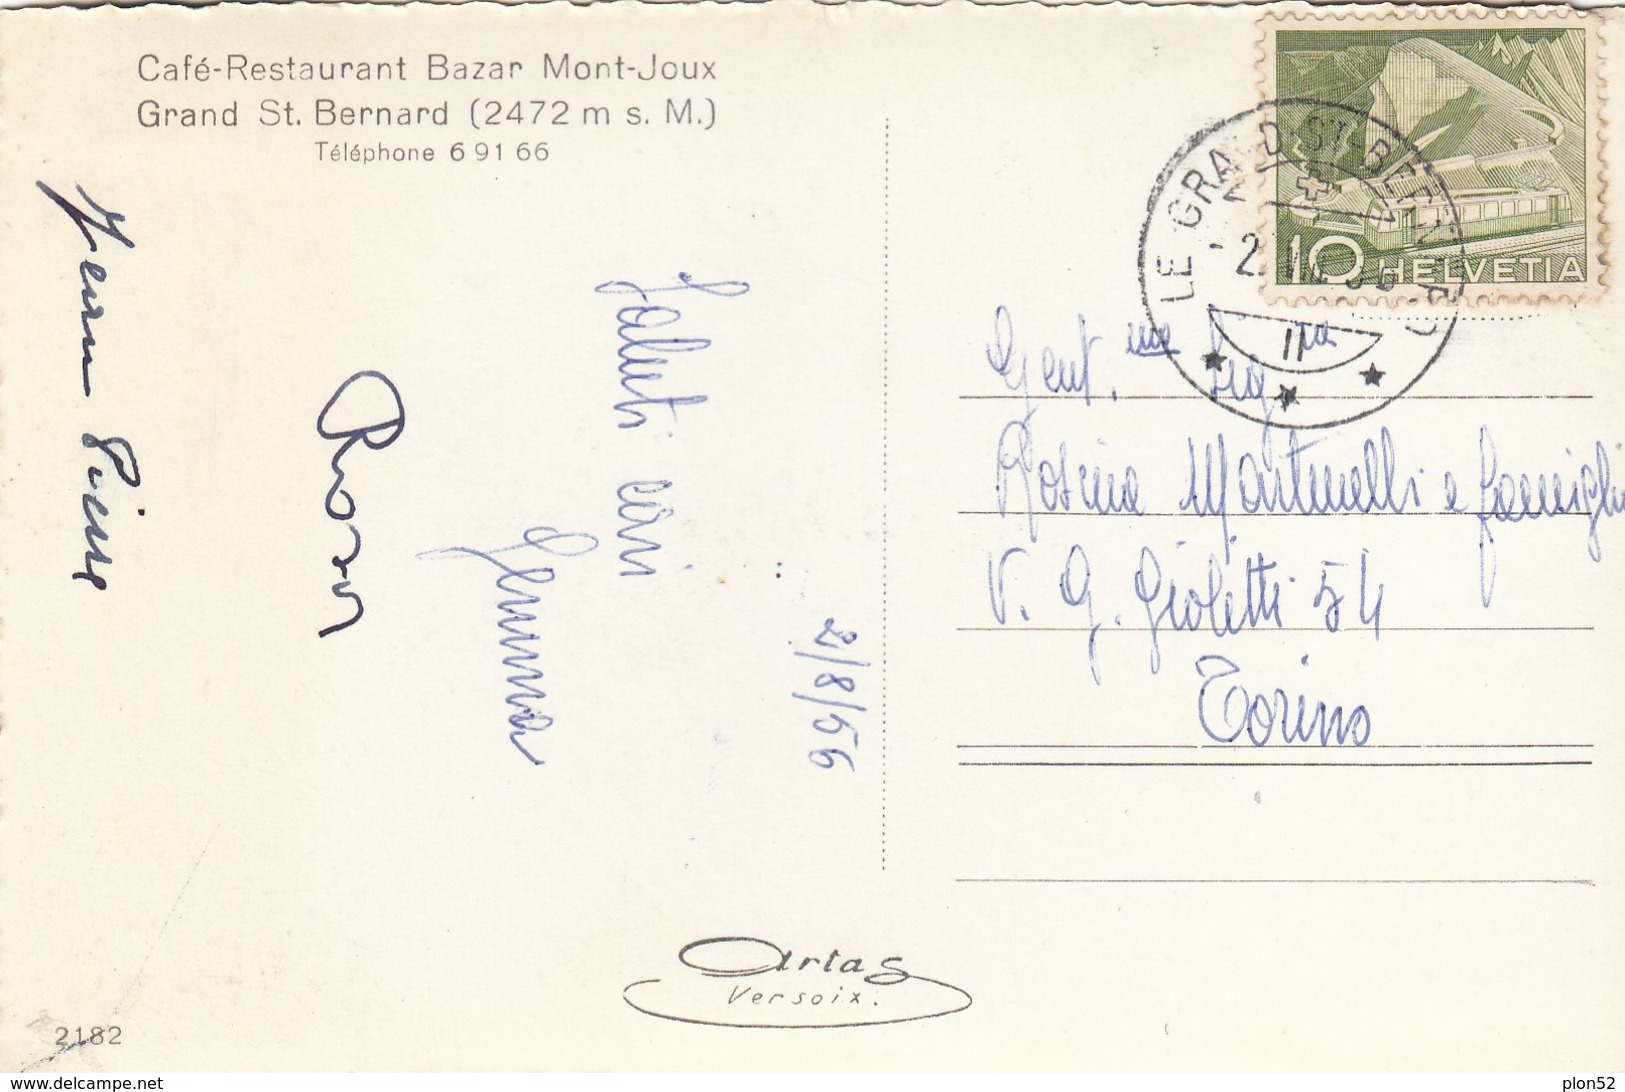 Café-Restaurant Bazar Mont-Joux
Grand St. Bernard (2472 m s. M.)
Téléphone 6 91 66
Saluti cari
Gemma
2/8/56
LE GRAND-ST-BERNARD
10 HELVETIA
Gent.ma Sig.ra
Rosina Martinelli e famiglia
V. G. Giolitti 54
Torino
Artas
Versoix.
2182
www.delcampe.net
plon52